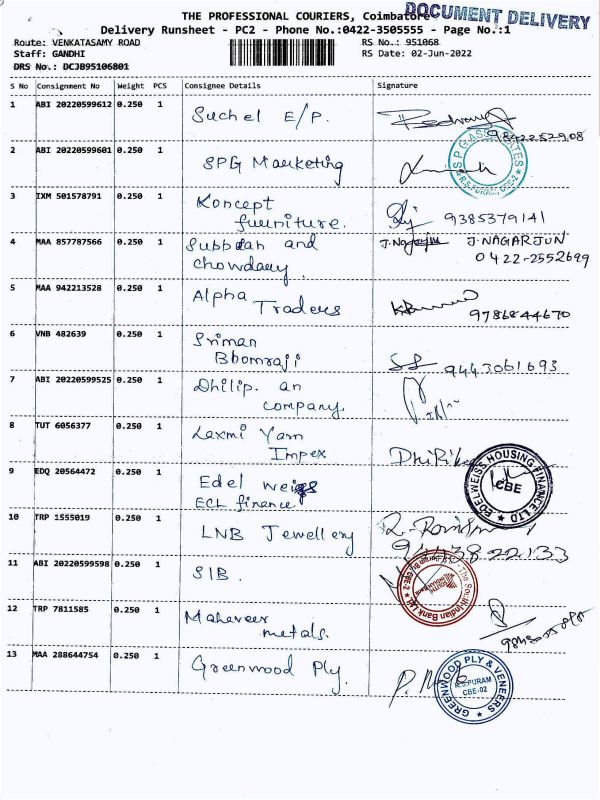 THE PROFESSIONAL COURIERS, Coimbatore
DOCUMENT DELIVERY
Delivery Runsheet - PC2 - Phone No.:0422-3505555 - Page No.:1
Route: VENKATASAMY ROAD
RS No.: 951068
Staff: GANDHI
RS Date: 02-Jun-2022
DRS No.: DCJB95106801
S No Consignment No Weight PCS Consignee Details Signature
1 ABI 20220599612 0.250 1 Suchel E/P.
9842252908
2 ABI 20220599601 0.250 1 SPG Marketing
S.P.G ASSOCIATES R.S.PURAM, CBE-2
3 IXM 501578791 0.250 1 Koncept
furniture. 9385379141
4 MAA 857787566 0.250 1 Subbdah and J.NAGARJUN
chowdaey. 0422-2552699
5 MAA 942213528 0.250 1 Alpha
Traders 9786844670
6 VNB 482639 0.250 1 Sriman
Bbomraji 9443061693
7 ABI 20220599525 0.250 1 Dhilip. an
company.
8 TUT 6056377 0.250 1 Laxmi Yarn
Impex
9 EDQ 20564472 0.250 1 Edel weigs
ECL finance
EDELWEISS HOUSING FINANCE LTD CBE
10 TRP 1555019 0.250 1 LNB Jewellery
94438 22133
11 ABI 20220599598 0.250 1 SIB.
The South Indian Bank Ltd
12 TRP 7811585 0.250 1 Mahaveer
metals.
13 MAA 288644754 0.250 1 Greenwood Ply.
GREENWOOD PLY & VENEERS R.S.PURAM CBE-02